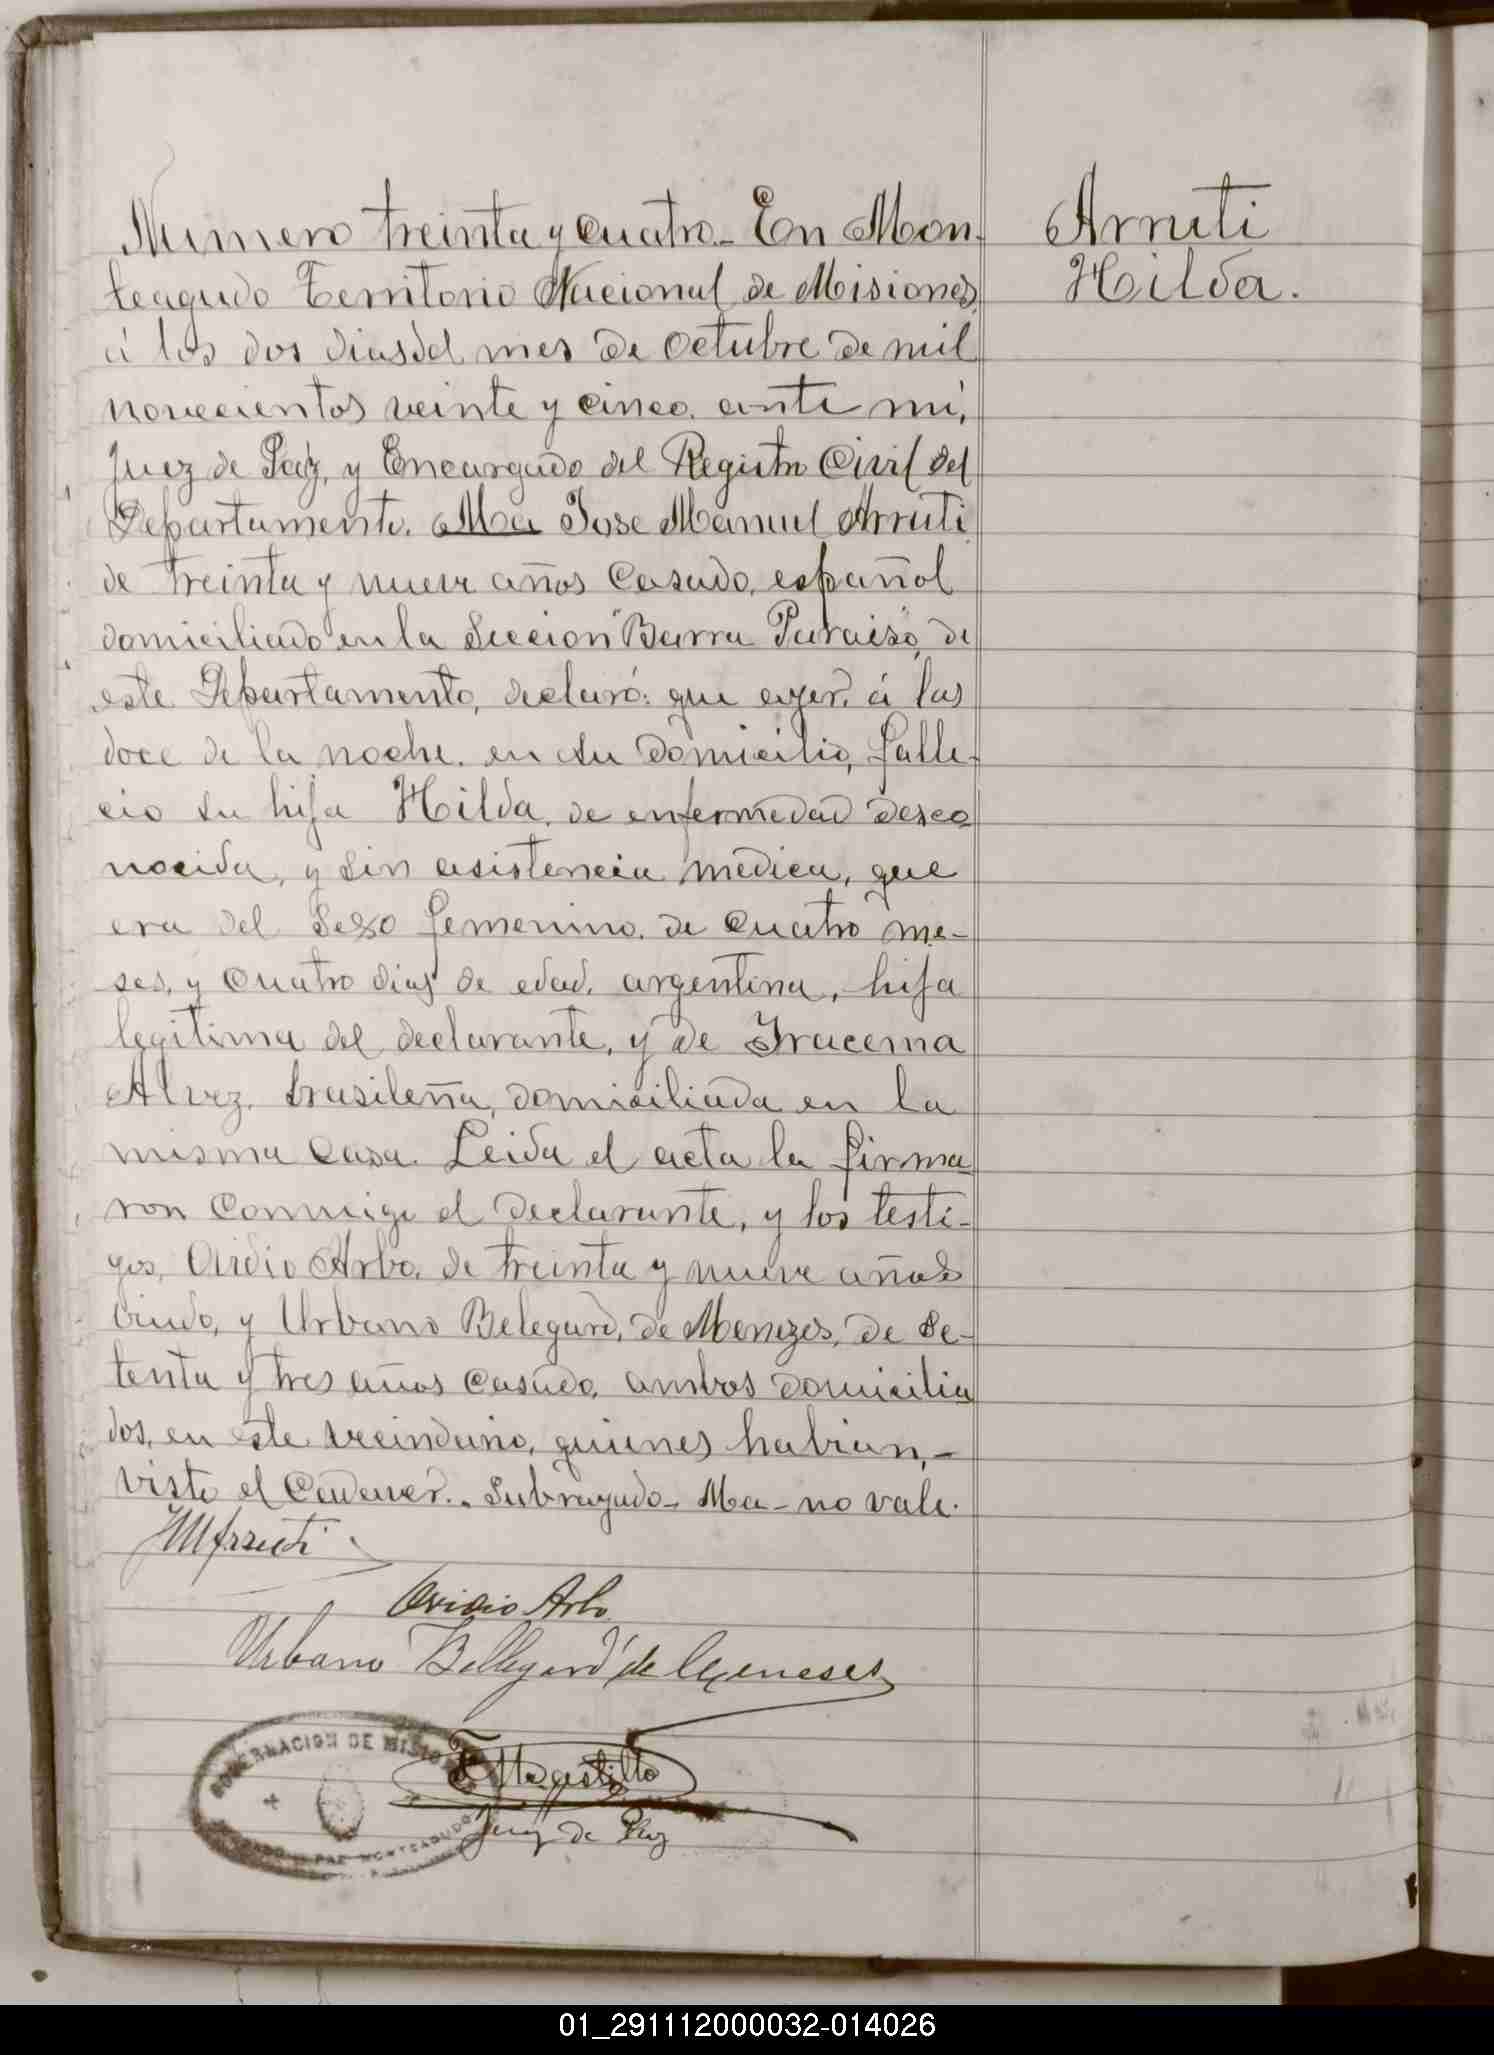 Numero treinta y cuatro.- En Mon-
teagudo Territorio Nacional de Misiones,
á los dos dias del mes de Octubre de mil
novecientos veinte y cinco. ante mi,
Juez de Paz, y Encargado del Registro Civil del
Departamento. Ma Jose Manuel Arruti
de treinta y nueve años Casado, español
domiciliado en la Seccion "Barra Paraiso, de
este Departamento, declaró: que ayer. á las
doce de la noche. en su domicilio, falle-
cio su hija Hilda, de enfermedad desco-
nocida, y sin asistencia medica, que
era del Sexo femenino. de cuatro me-
ses, y cuatro dias de edad, argentina, hija
legitima del declarante, y de Iracema
Alvez, brasileña, domiciliada en la
misma casa. Leida el acta la firma-
ron conmigo el declarante, y los testi-
gos, Ovidio Arbo, de treinta y nueve años
viudo, y Urbano Belegard, de Menezes, de se-
tenta y tres años casado, ambos domicilia
dos, en este vecindario, quienes habian,-
visto el Cadaver.- Subrayado- Ma- no vale.
Arruti
Hilda.
JMArruti
Ovidio Arbo
Urbano Bellegard de Meneses
Juez de Paz
GOBERNACION DE MISIONES
JUZGADO DE PAZ MONTEAGUDO
01_291112000032-014026